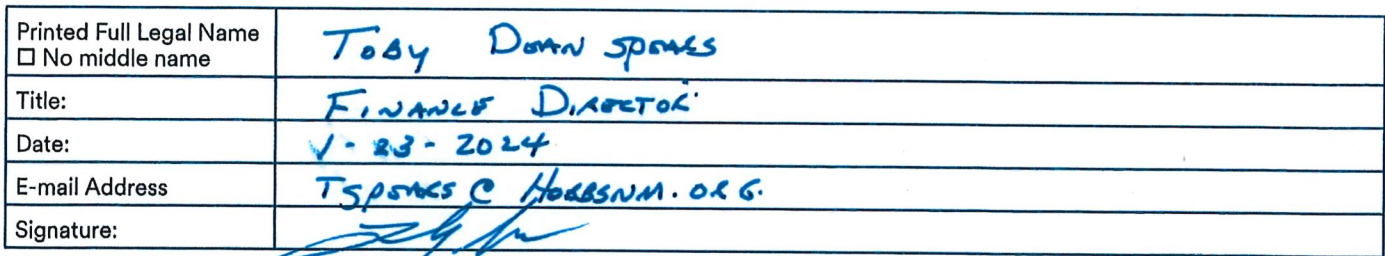 Printed Full Legal Name
☐ No middle name
TOBY DEAN SPEARS
Title:
FINANCE DIRECTOR
Date:
1-23-2024
E-mail Address
TSPEARS@HOBBSNM.ORG.
Signature: